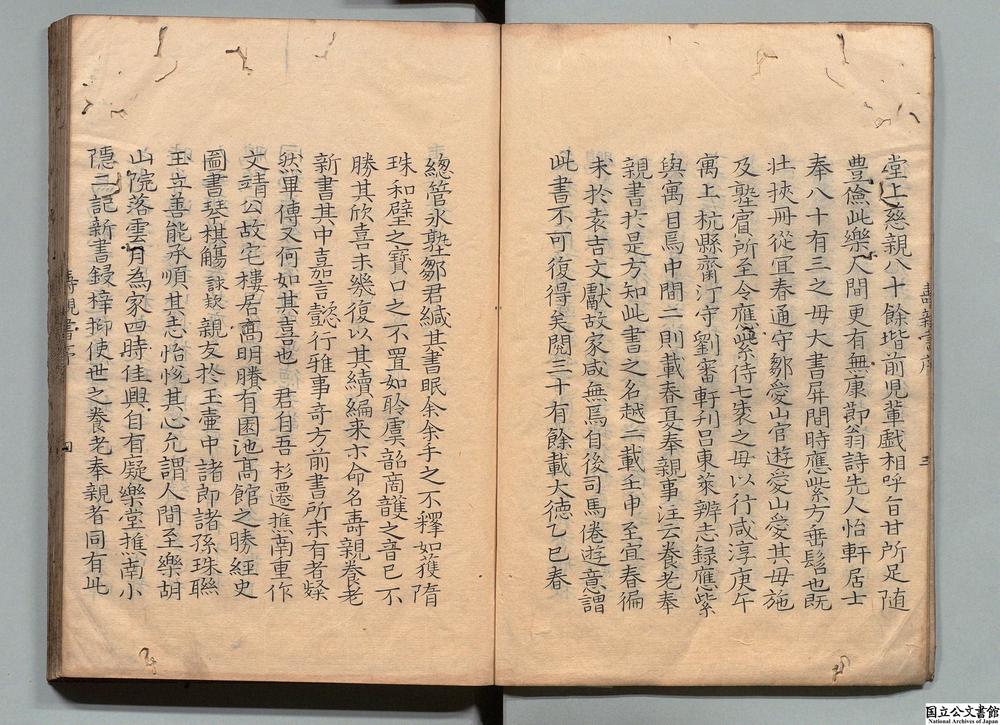 堂上慈親八十餘堦前児輩戯相呼旨甘所足随
豊儉此樂人間更有無康節翁詩先人怡軒居士
奉八十有三之母大書屏間時應紫方垂髫也既
壯挾冊從冝春通守鄒愛山官遊愛山愛其母施
及塾賓所至令應紫侍七袠之母以行咸淳庚午
寓上杭縣齋汀守劉審軒刋吕東萊辨志録應紫
與寓目焉中間二則載春夏奉親事注云養老奉
親書扵是方知此書之名越二載壬申至宜春徧
求於袁吉文獻故家咸無焉自後司馬倦遊意謂
此書不可復得矣閱三十有餘載大德乙巳春
壽親書序 三
總管永塾鄒君緘其書眎余余手之不釋如獲隋
珠和璧之寳口之不置如聆虞韶啇頀之音已不
勝其欣喜未幾復以其續編来示命名壽親養老
新書其中嘉言懿行雅事竒方前書所未有者粲
然畢傳又何如其喜也 君自吾杉遷樵啇重作
文靖公故宅樓居髙明賸有園池髙館之勝經史
圖書琴棋觴詠欵親友於玉壷中諸郎諸孫珠聯
玉立善能承順其志怡恱其心允謂人間至樂胡
山院落雲月為家四時佳興自有凝樂堂樵南小
隠二記新書鋟梓抑使世之養老奉親者同有此
壽親書序 四
国立公文書館
National Archives of Japan